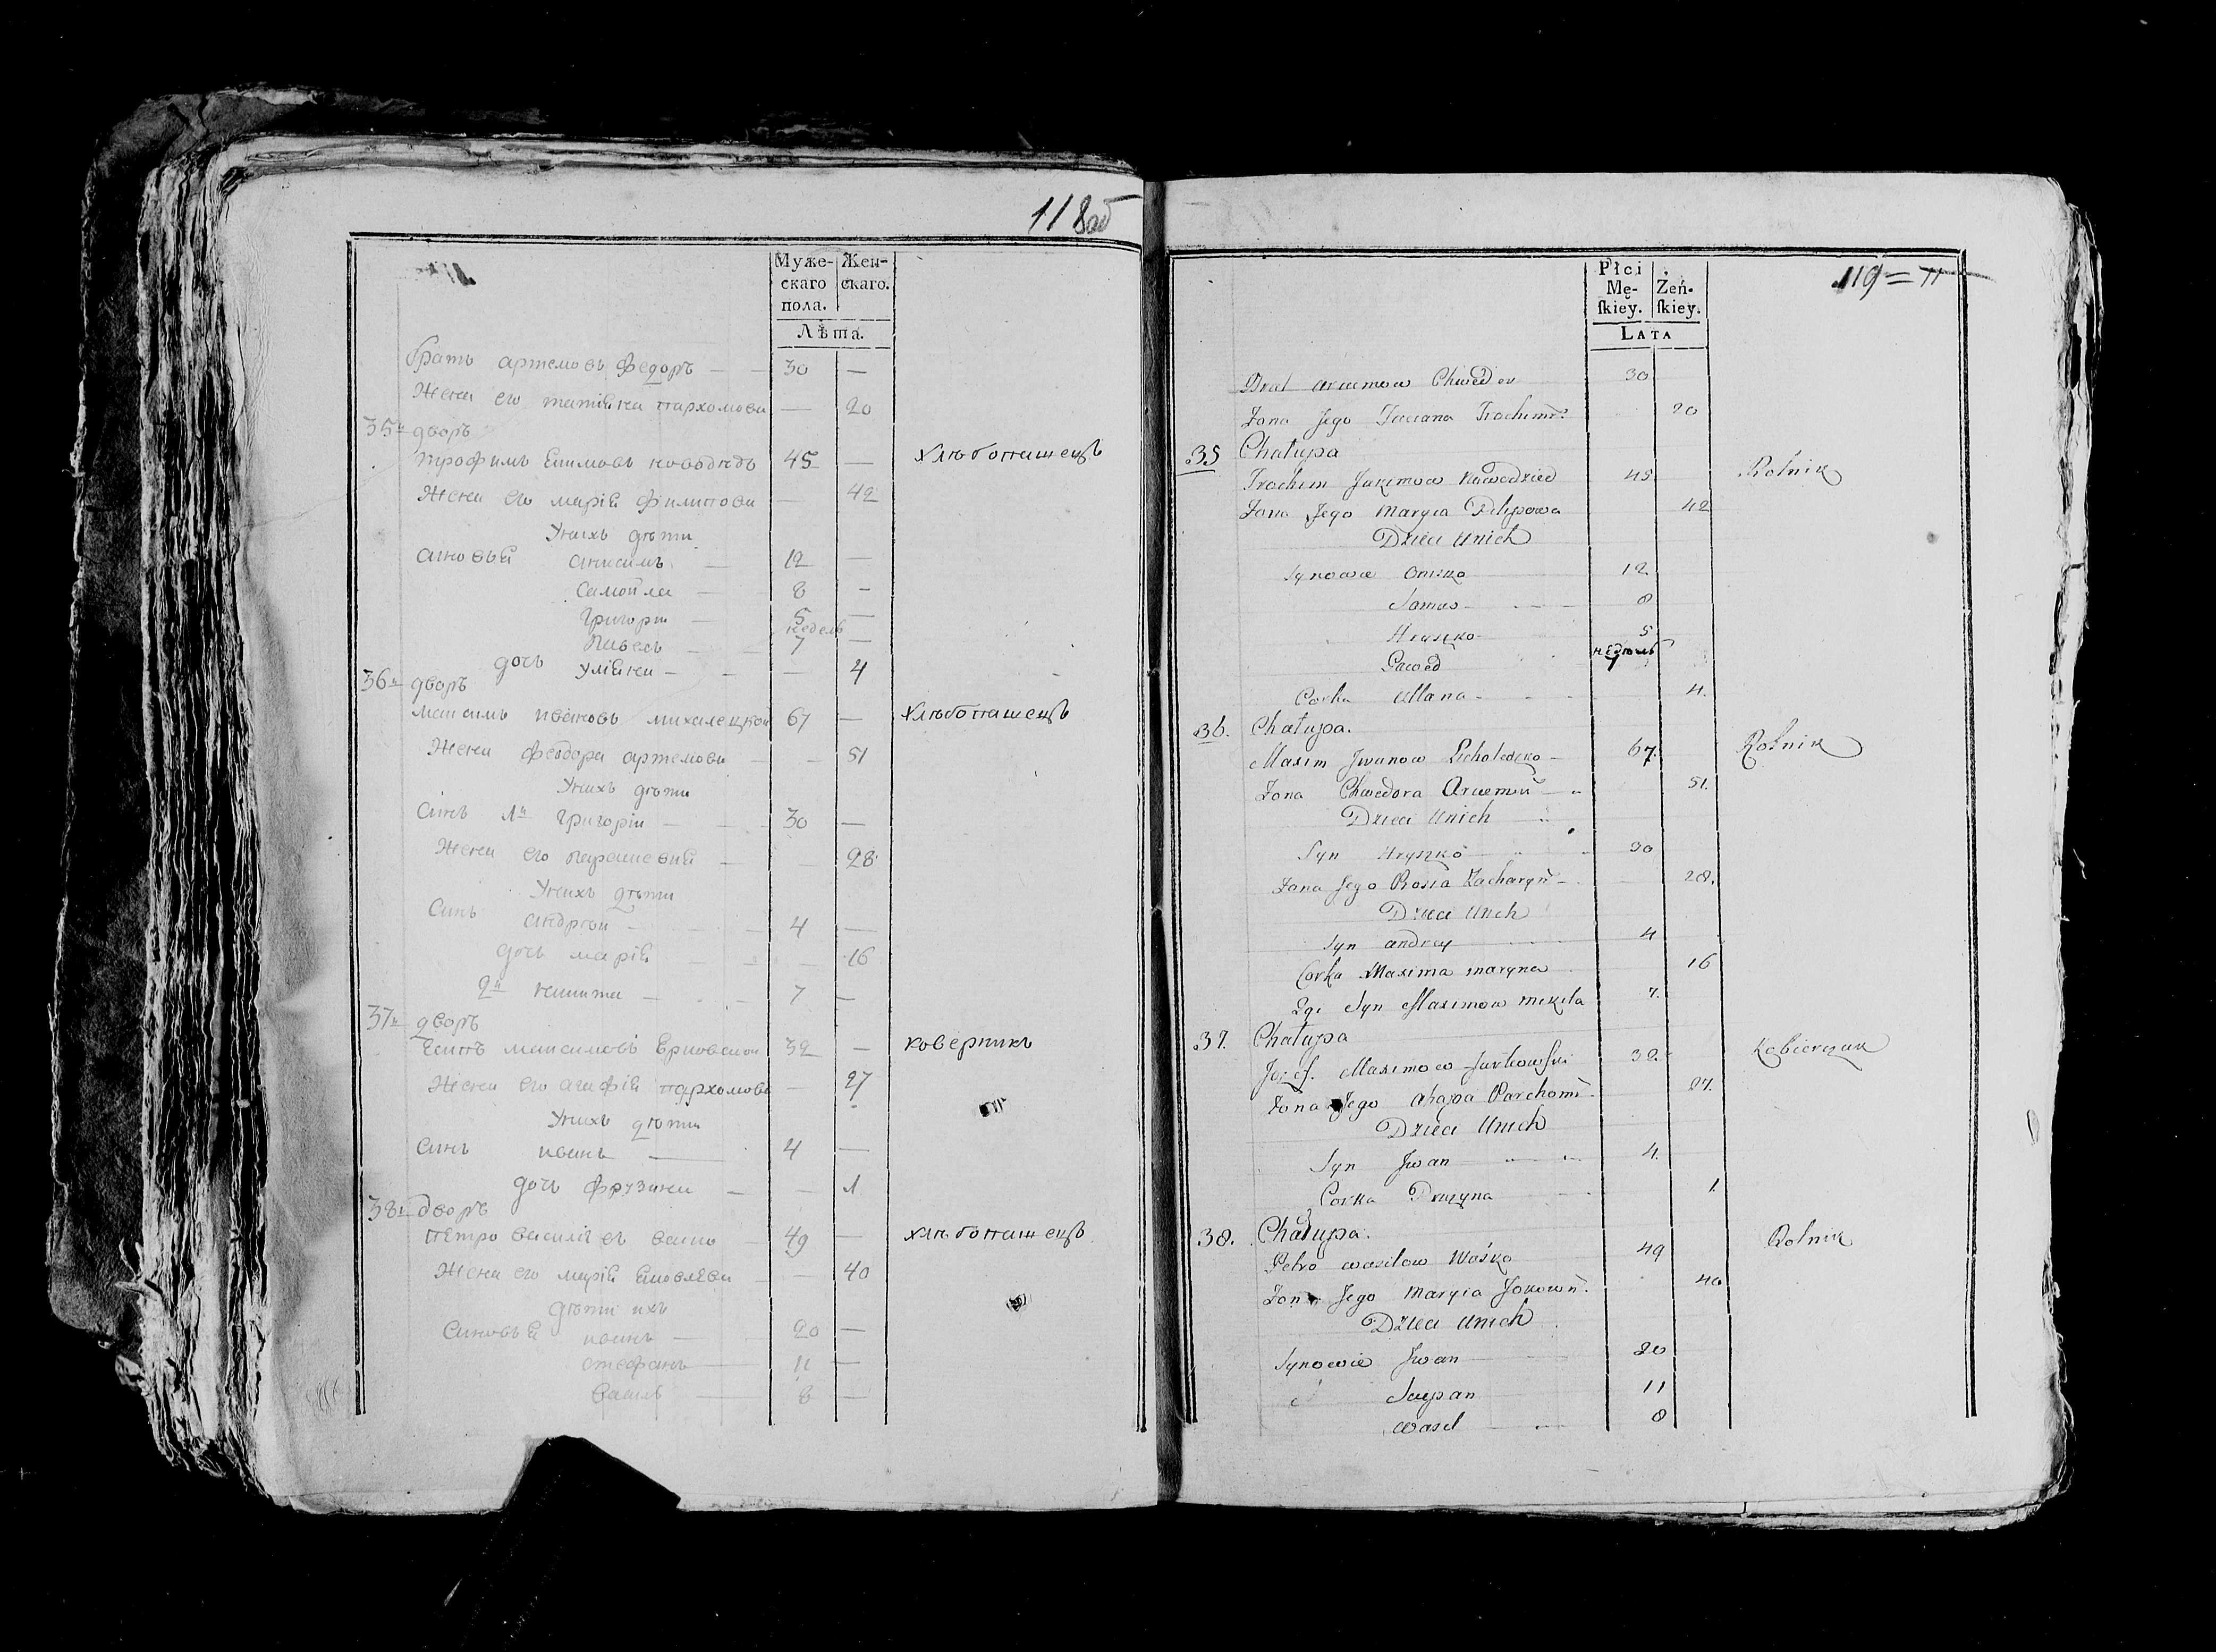 118об
Муже-
скаго
пола.
Жен-
скаго.
Лѣта.
братъ артемовъ федоръ — 30 —
Жена его татіяна пархомова — 20
35й дворъ
трофимъ якимовъ ководѣдъ 45 — хлѣбопашецъ
Жена его марія филипова — 42
Унихъ дѣти
синовья анисимъ — 12 —
самойла — 8 —
Григорій — 5 —
недель
павелъ — 7 —
дочъ уліяна — — 4
36й дворъ
максимъ ивановъ михалецкой 67 — хлѣбопашецъ
Жена феодора артемова — — 51
Унихъ дѣти
синъ 1й григорій — 30 —
Жена его парасковия — — 28
Унихъ дѣти
синъ андрѣй — 4 —
дочъ марія — 16
2й никита — 7 —
37й дворъ
максимовъ 32 — коверникъ
Жена его агафія пархомова — 27
Унихъ дѣти
синъ иванъ — 4 —
дочъ фрузина — — 1
38й дворъ
петро василіевъ васко 49 — хлѣбопашецъ
Жена его марія яковлева — — 40
дѣти ихъ
синовья иванъ — 20 —
стефанъ — 11 —
василь — 8 —
119 = 11
Płci
Mę-
ſkiey.
Żeń-
ſkiey.
LATA
Brat Arciemow Chwedor 30
Zona Jego Taciana Trochimo: 20
35 Chałupa
Trochim Jakimow Kawodzied 45 Rolnik
Zona Jego Maryia Pilipowa 42
Dzieci Unich
Synowie Onisko 12
Samus — 8
Hryszko 5
недѣль
Pawed 7
Corka Ullana — 4.
36. Chałupa.
Maxim Jwanow Licholedzko — 67. Rolnik
Zona Chwedora Arciemo: — 51.
Dzieci Unich
Syn Hryszko 30
Zona Jego Rosia Zacharyń — 28.
Dzieci Unich
Syn andrey 4
Corka Maxima maryna 16
2gi Syn Maximow mikita 7.
37. Chałupa
Jozef. Maximow Jurkowski 32. Kobierczuk
Zona Jego ahapa Parchomo: 27.
Dzieci Unich
Syn Jwan 4.
Corka Pruzyna 1.
38. Chałupa. Rolnik
Petro wasilow Waśko 49
Zona Jego Maryia Jakowo: 40
Dzieci Unich
Synowie Jwan 20
Sciepan 11
wasil 8